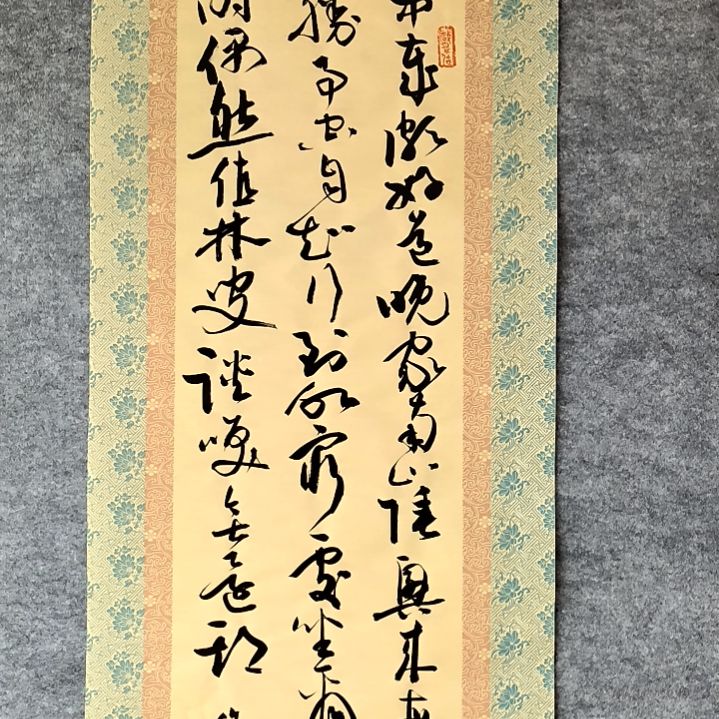 中歲頗好道晚家南山陲興來每
勝事空自知行到水窮處坐看
時偶然值林叟談咲無還期